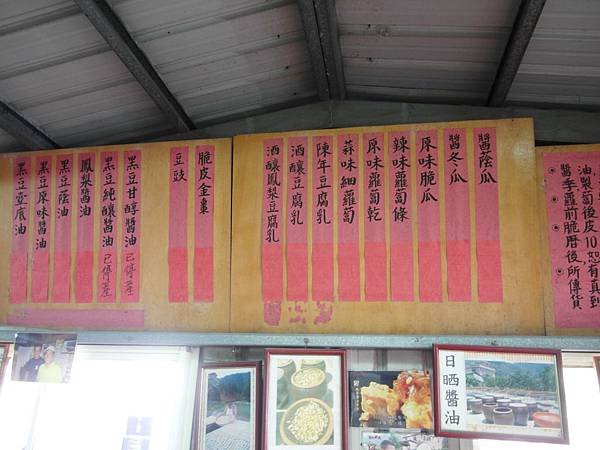 醬蔭瓜
醬冬瓜
原味脆瓜
辣味蘿蔔條
原味蘿蔔乾
蒜味細蘿蔔
陳年豆腐乳
酒釀豆腐乳
酒釀鳳梨豆腐乳
脆皮金棗
豆豉
黑豆甘醇醬油 已停產
黑豆純釀醬油 已停產
鳳梨醬油
黑豆蔭油
黑豆原味醬油
黑豆壺底油
日晒醬油